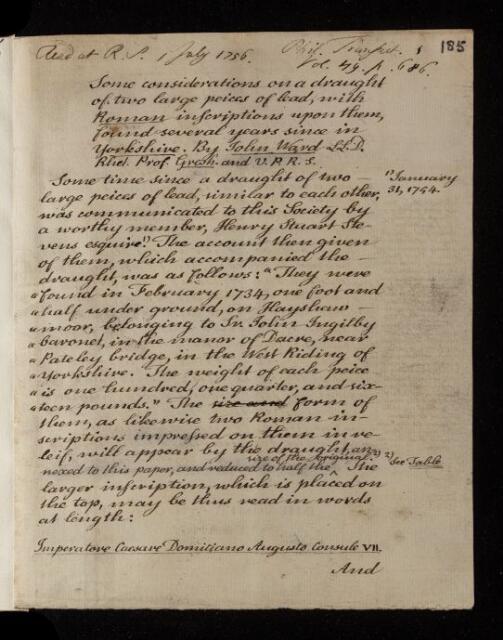 Read at R. S. 1 July 1756. Phil. Transact.
Vol. 49. p. 686.
185
Some considerations on a draught
of two large peices of lead, with
Roman inscriptions upon them,
found several years since in
Yorkshire. By John Ward LL.D.
Rhet. Prof. Gresh. and V.P.R.S.
Some time since a draught of two
large peices of lead, similar to each other,
was communicated to this Society by
a worthy member, Henry Stuart Ste-
vens esquire.1) The account then given
of them, which accompanied the
draught, was as follows: "They were
"found in February 1734, one foot and
"half under ground, on Hayshaw
"moor, belonging to Sr. John Ingilby
"baronet, in the manor of Dacre, near
"Pateley bridge, in the West Riding of
"Yorkshire. The weight of each peice
"is one hundred, one quarter, and six-
"teen pounds." The size and form of
them, as likewise two Roman in-
scriptions impressed on them in re-
leif, will appear by the draught, an-
size of the original.2)
nexed to this paper, and reduced to half the ^ The
larger inscription, which is placed on
the top, may be thus read in words
at length:
Imperatore Caesare Domitiano Augusto Consule VII.
And
1) January
31, 1754.
2) See Table